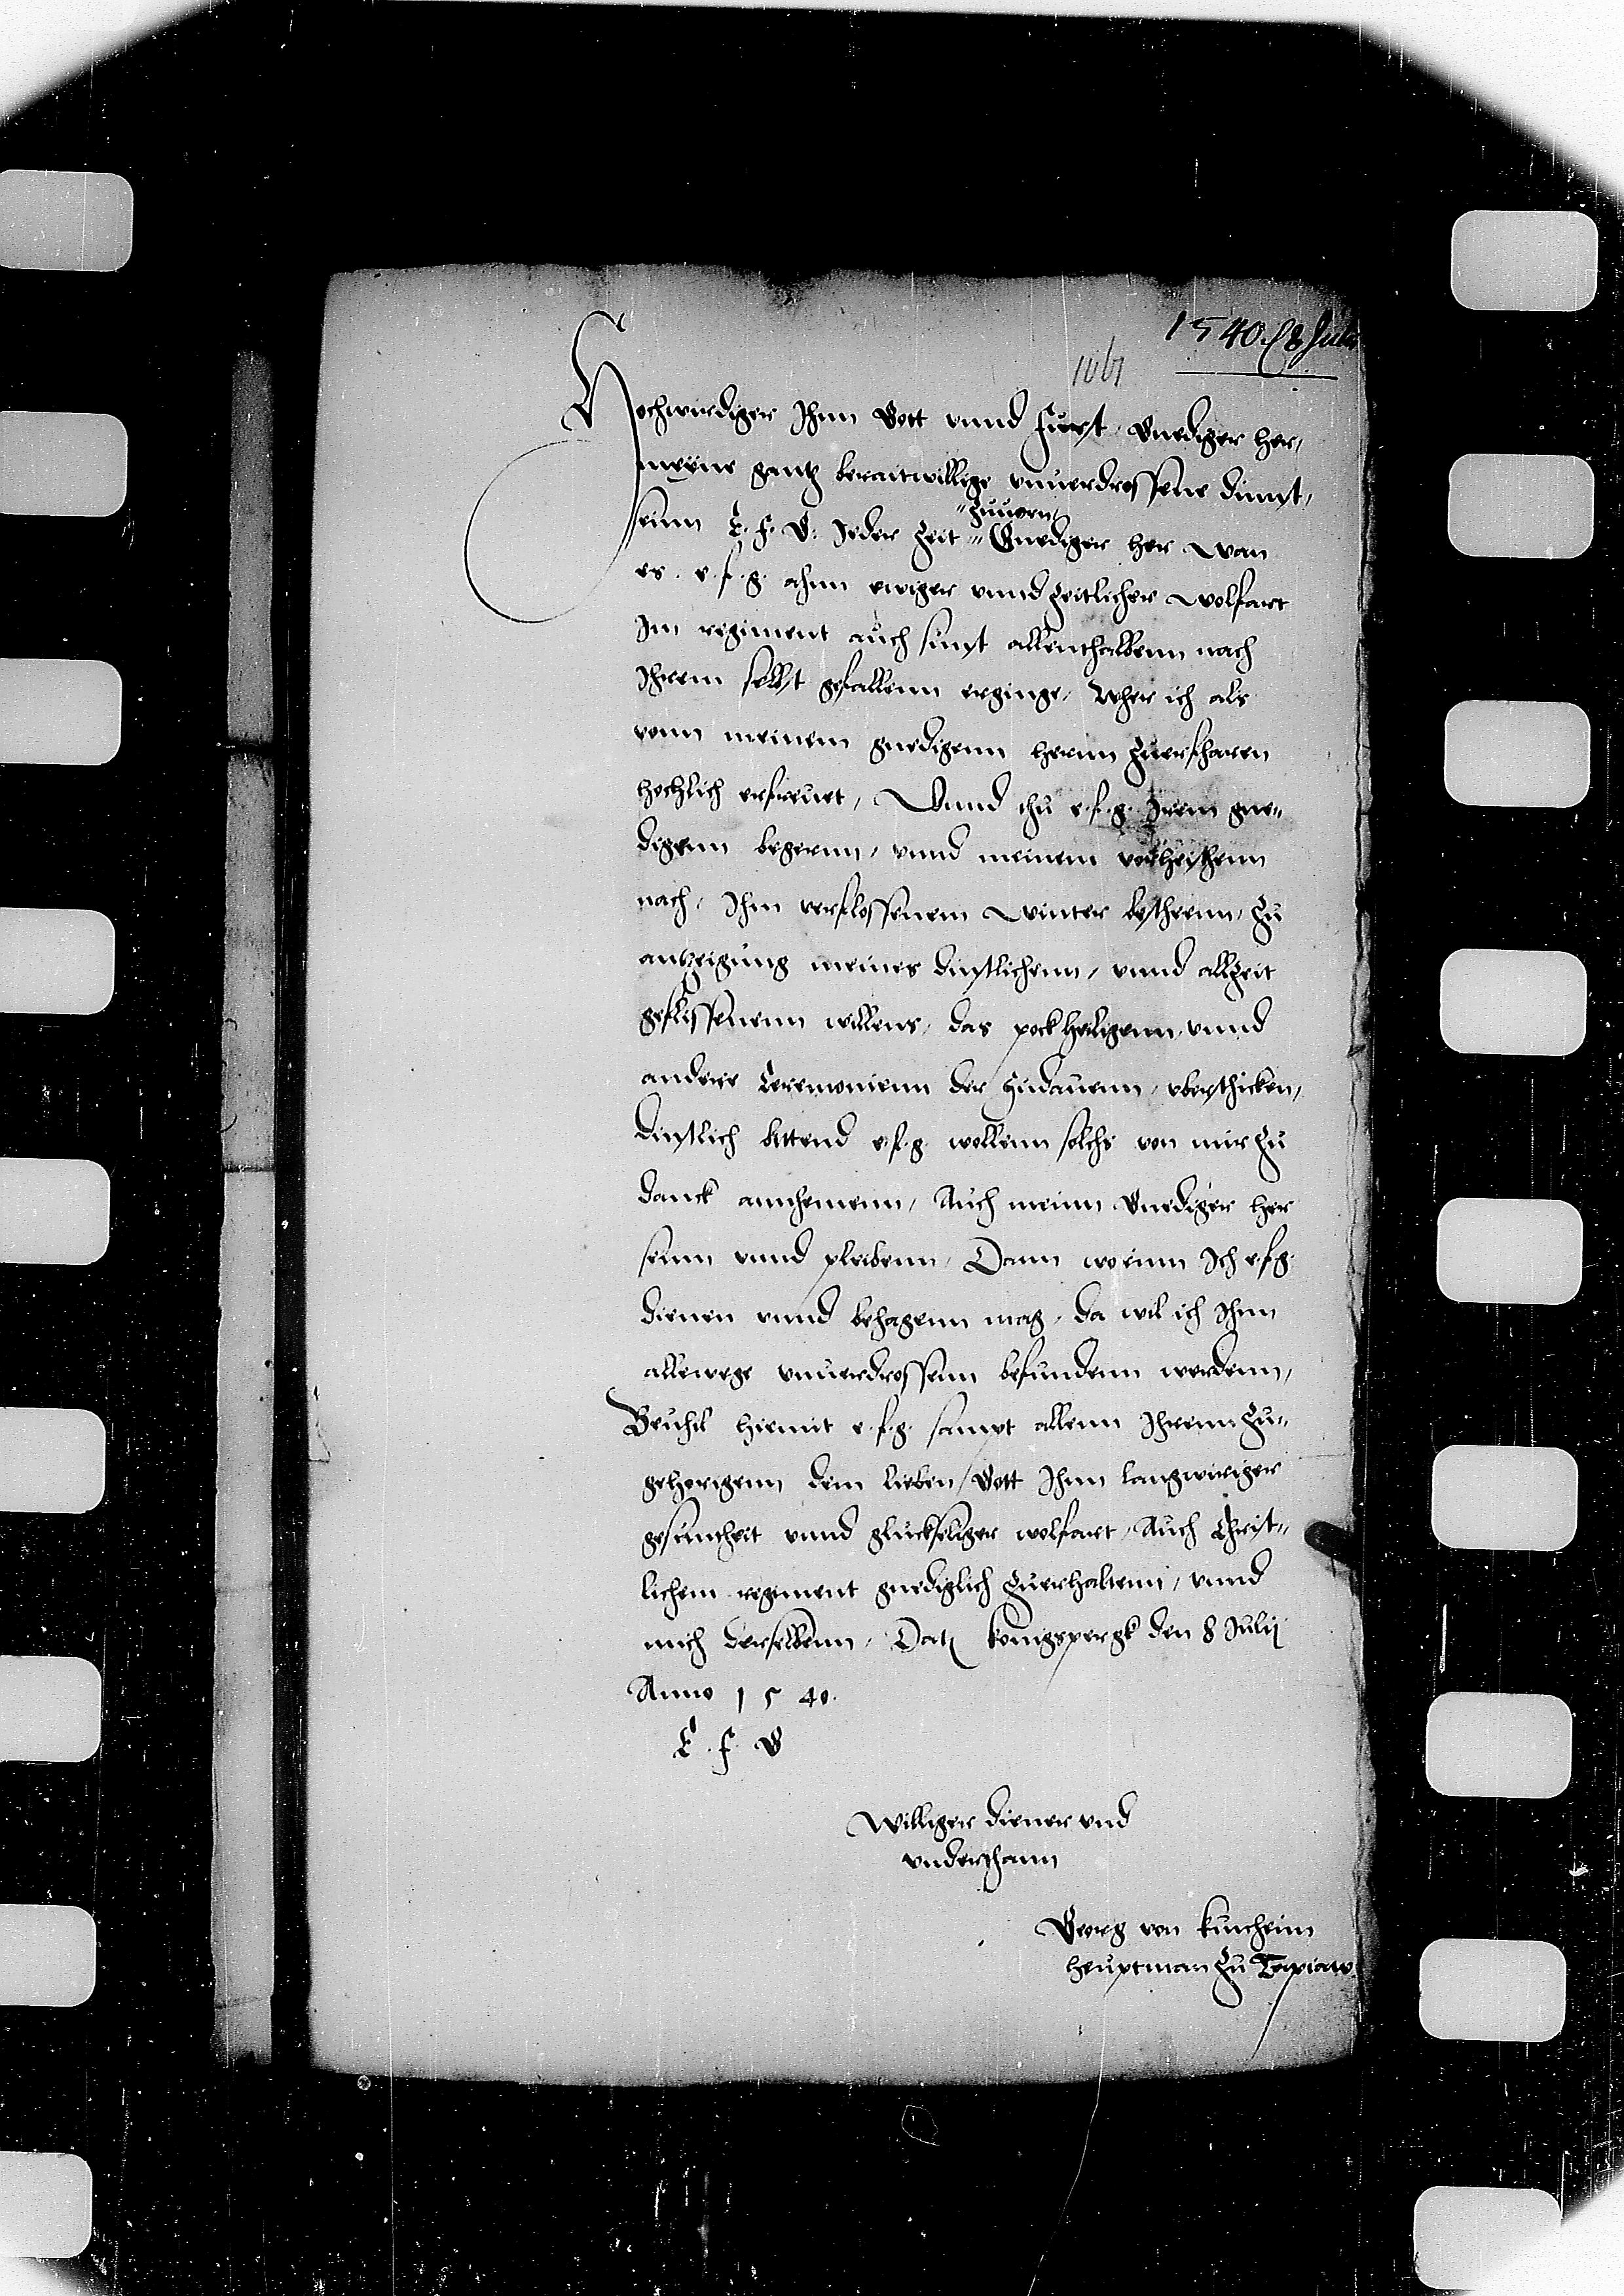 1540. (8 Juli
1061
Hochwirdiger Ihnn Gott vnnd Furst, Gnediger her,
meyne gantz beraitwillige vnuerdrossene dinnst,
seinn E. F. G. Jeder Zeit Zuuorn
Gnediger her Wan
es. e. f. g. ahnn ewiger vnnd Zeitlicher Wolfart
Im regiment auch sunst allenthalbenn nach
Ihrem selbst gefallenn erginge, Wher ich als
vonn meinem gnedigenn hernn Zuerfharen
hochlich erfreuet, Vnnd thu e. f. g. Irem gne-
digenn begernn, vnnd meinem vorheischenn
nach, Ihm verflossenem Winter bescheenn, Zu
antzeigung meines dinstlichenn, vnnd allzeit
geflissenenn willens, das pock heiligenn vnnd
andere Ceremonienn der Sudauenn, vberschicken,
dinstlich bittend e. f. g. wollenn solchs von mir Zu
danck annhemenn, Auch meinn Gnediger her
seinn vnnd pleibenn, Dann worinn Ich e f g.
dienen vnnd behagenn mag, da wil ich Ihnn
allewege vnuerdrossenn befundenn werdenn,
Beuhil hiemit e. f. g. sampt allenn Ihrenn Zu-
gehorigenn dem lieben Gott Ihnn langwiriger
gesuntheit vnnd gluckseliger wolfart, Auch Christ-
lichem regiment gnediglich Zuerhaltenn, vnnd
mich derselbenn, Datj konigspergk den 8 Julij
Anno 1540.
E. f. G
Williger diener vnd
vnderthann
Georg von kuncheim
heuptman Zu Tapiaw